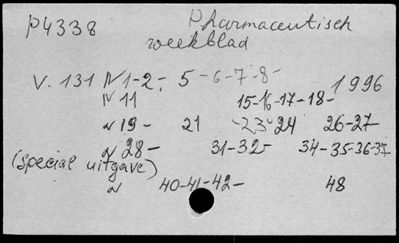 P4338 Pharmaceutisch
weekblad
V. 131 N 1-2, 5-6-7-8- 1996
N 11 15-16-17-18-
N 19- 21 -23-24 26-27
N 28- 31-32- 34-35-36-37
(special uitgave)
N 40-41-42- 48